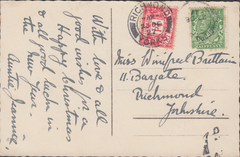 With love & all
good wishes for a
Happy Christmas
& all good luck in
the New Year -
Auntie
RICHMOND
YORKS
Miss Winifred Brittain
11. Bargate
Richmond
Yorkshire